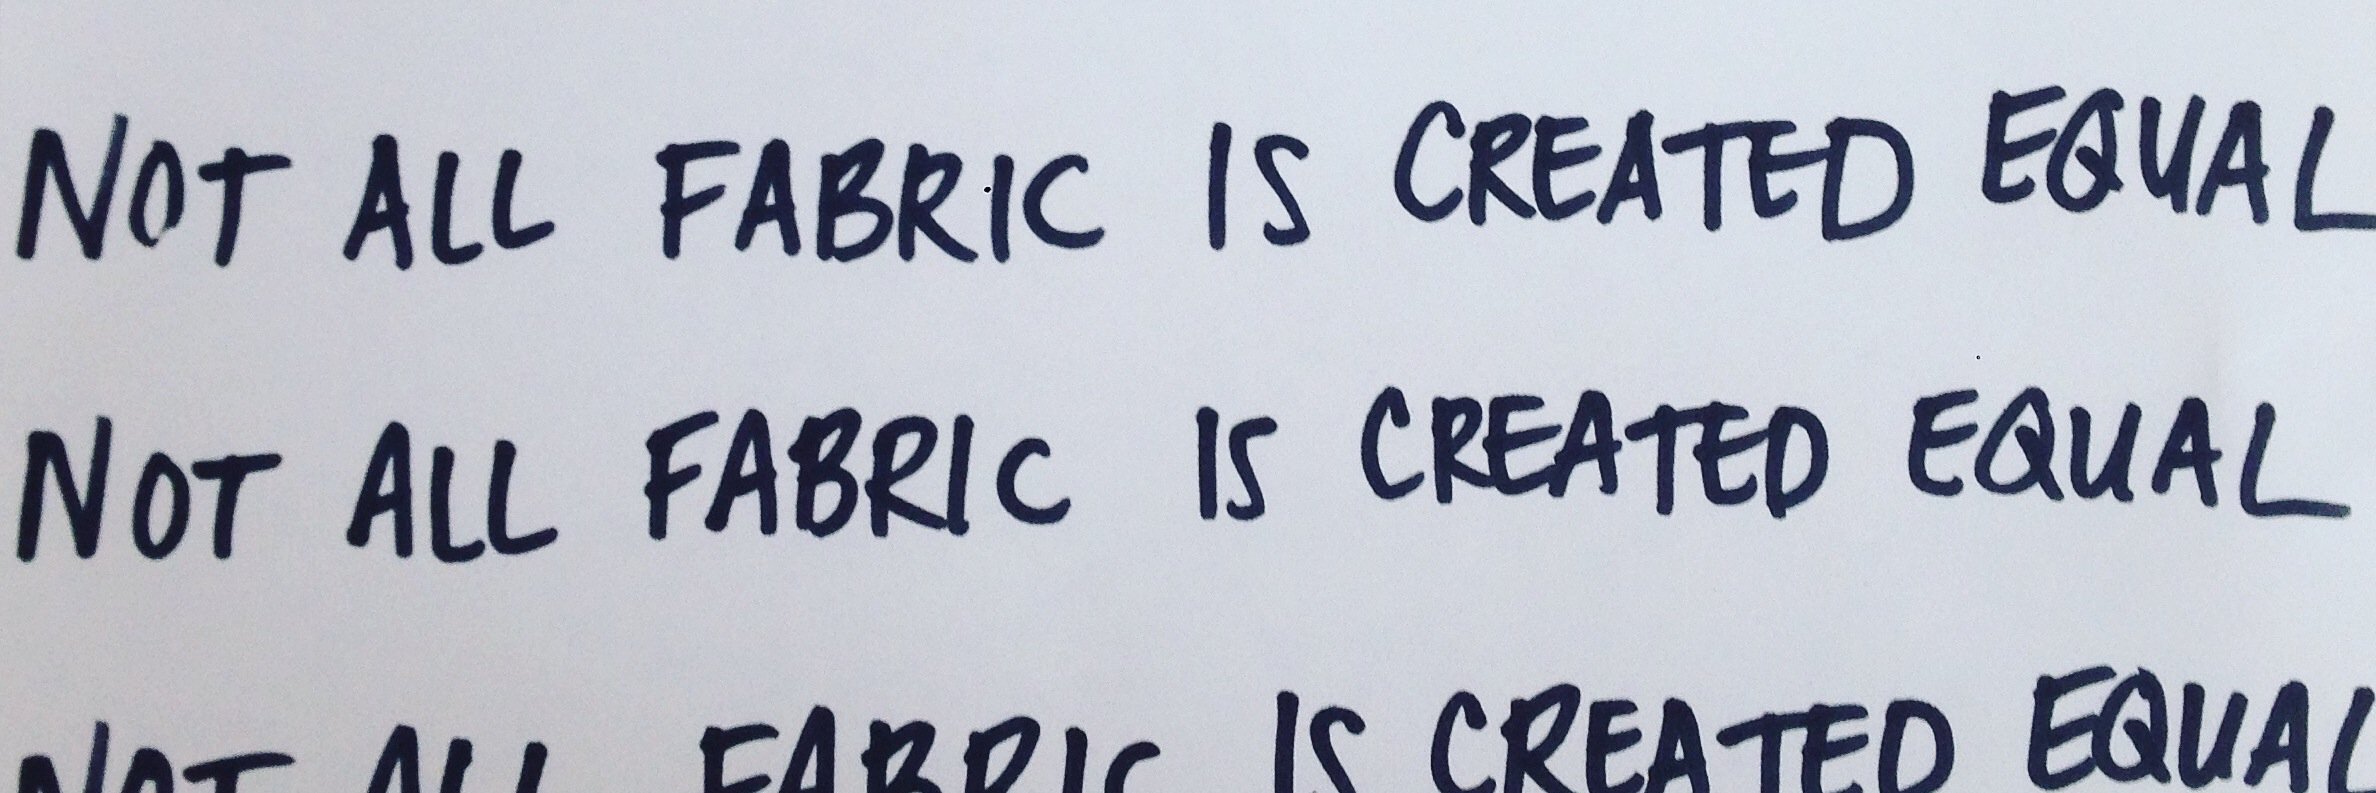 NOT ALL FABRIC IS CREATED EQUAL
NOT ALL FABRIC IS CREATED EQUAL
NOT ALL FABRIC IS CREATED EQUAL